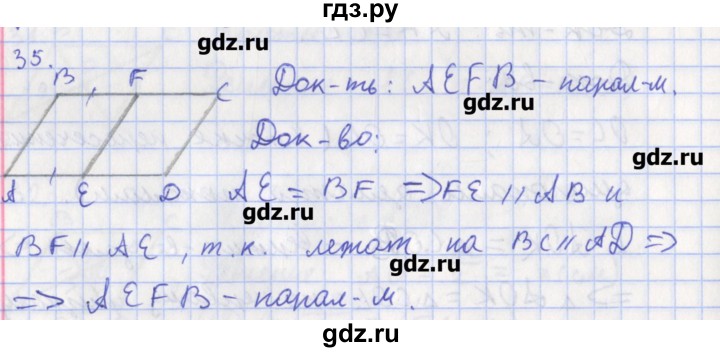 гдз.ру
35.
gdz.ru
B F C
Док-ть: AEFB – парал-м.
gdz.ru
Док-во:
gdz.ru
A E D
AE = BF => FE // AB и
gdz.ru
BF // AE, т.к. лежат на BC // AD =>
gdz.ru
=> AEFB – парал-м.
gdz.ru
gdz.ru